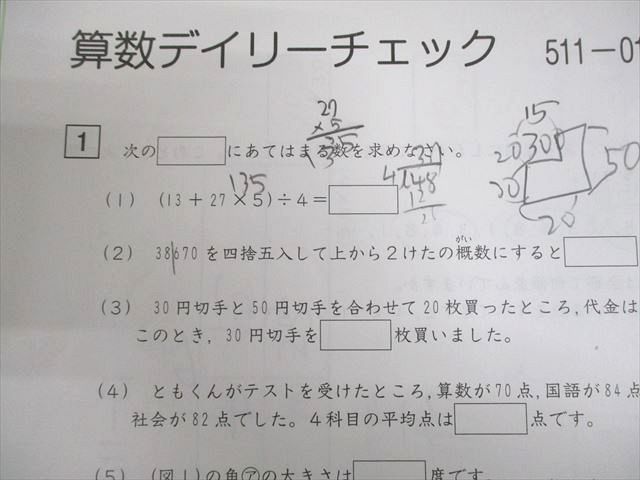 算数デイリーチェック 511-01
1 次の にあてはまる数を求めなさい。
27
×5
135
(1) (13+27×5)÷4=
37
4 148
12
2
15
20 300
20
20
50
(2) 38670を四捨五入して上から2けたの概数にすると
がい
(3) 30円切手と50円切手を合わせて20枚買ったところ,代金は
このとき, 30円切手を 枚買いました。
(4) ともくんがテストを受けたところ,算数が70点,国語が84点
社会が82点でした。4科目の平均点は 点です。
(5) (図1)の角㋐の大きさは 度です。